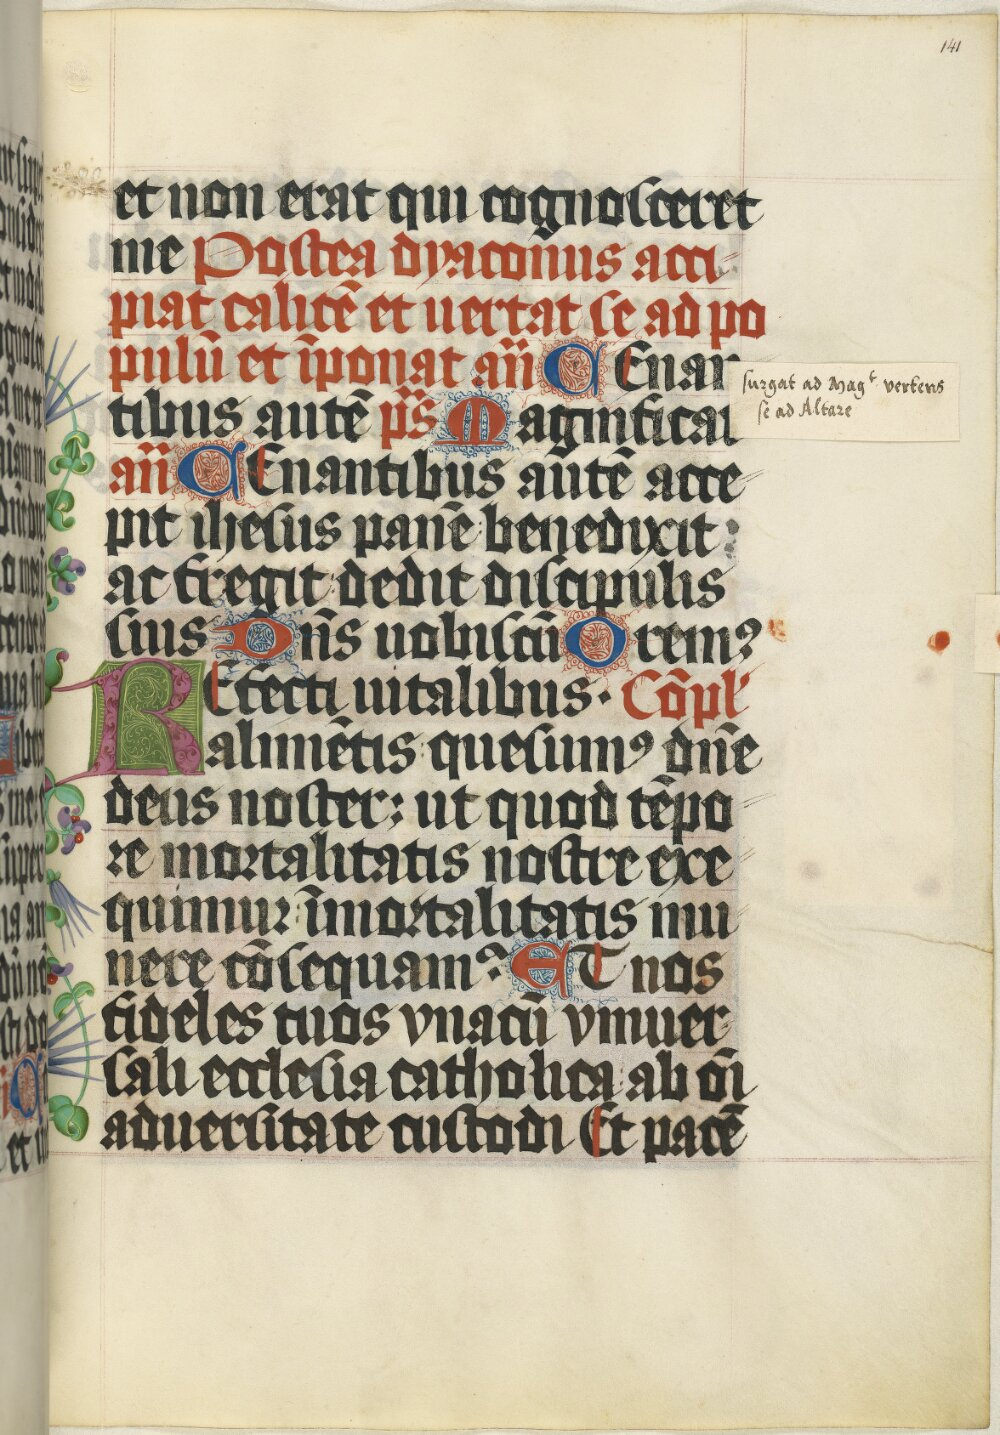 141
et non erat qui cognosceret
me Postea dyaconus acci-
piat calicē et uertat se ad po
pulū et īponat añ CEnan
surgat ad Magt vertens
se ad Altare
tibus autē p̄s Magnificat
añ CEnantibus autē acce-
pit ihesus panē benedixit:
ac fregit dedit discipulis
suis Dn̄s uobiscū Oremꝰ
REfecti uitalibus. Cōpl'
alimētis quesumꝰ dn̄e
deus noster: ut quod tēpo-
re mortalitatis nostre exe-
quimur īmortalitatis mu
nere cōsequamꝰ ET nos
fideles tuos vnacū vniuer-
sali ecclesia catholica ab oī
aduersitate custodi Et pacē